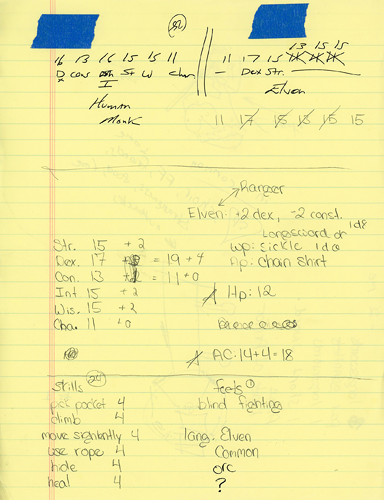 82
16 13 16 15 15 11
D con St W Char
I
Human
Monk
13 15 15
11 17 15
— Dex Str.
Elven
11 17 18 13 15 15
ranger
Elven: +2 dex, -2 const.
longsword or 1d8
wp: sickle 1d6
Ap: chain shirt
Str. 15 +2
Dex. 17 = 19 +4
Con. 13 = 11 +0
Int 15 +2
Wis. 15 +2
Cha. 11 +0
Hp: 12
AC: 14+4=18
skills 24
pick pocket 4
climb 4
move silently 4
use rope 4
hide 4
heal 4
feats 1
blind fighting
lang: Elven
Common
orc
?